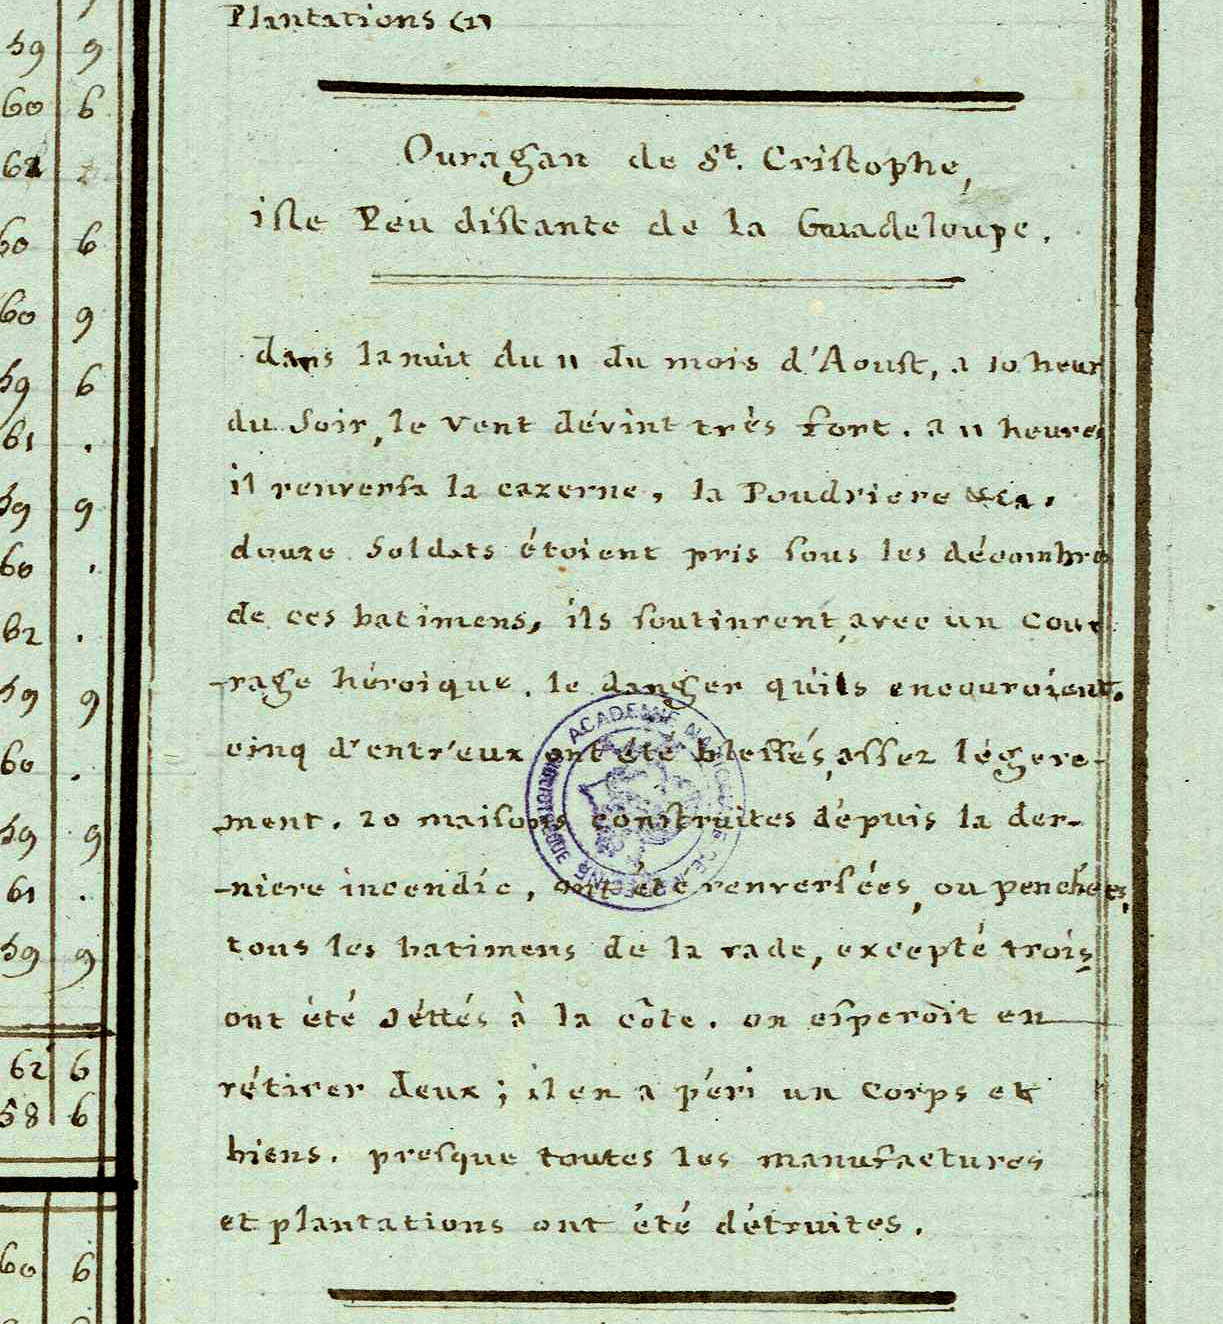 Plantations (1)
Ouragan de St. Cristophe,
isle Peu distante de la Guadeloupe.
dans la nuit du 11 du mois d'Aoust, a 10 heur
du Soir, le vent dévint très fort. a 11 heures
il renversa la cazerne, la Poudriere &ca.
douze Soldats étoient pris sous les décombre
de ces batimens, ils soutinrent, avec un Cou
-rage héroique, le danger qu'ils encouroient.
cinq d'entr'eux ont été blessés, assez légere-
-ment. 20 maisons construites dépuis la der-
-niere incendie, ont été renversées, ou penchées,
tous les batimens de la rade, excepté trois,
ont été Jéttés à la côte. on esperoit en
rétirer deux ; il en a péri un Corps et
biens. presque toutes les manufactures
et plantations ont été détruites.
59 9
60 6
62
60 6
60 9
59 6
61 .
59 9
60 .
62 .
59 9
60 .
59 9
61 .
59 9
62 6
58 6
60 6